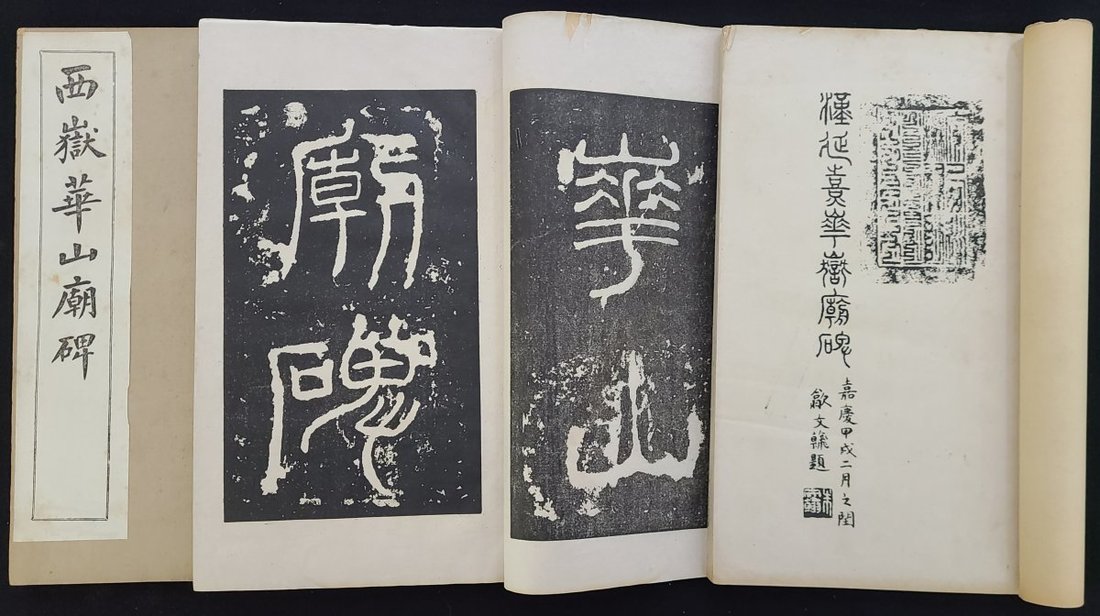 西嶽華山廟碑
漢延熹華嶽廟碑
嘉慶甲戌二月之閏
歙文翰題
華山
廟碑